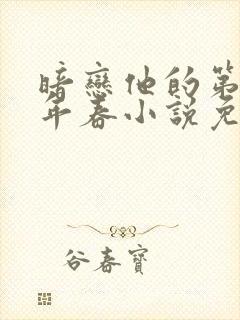 暗戀他的第
年春小說免
谷春寶